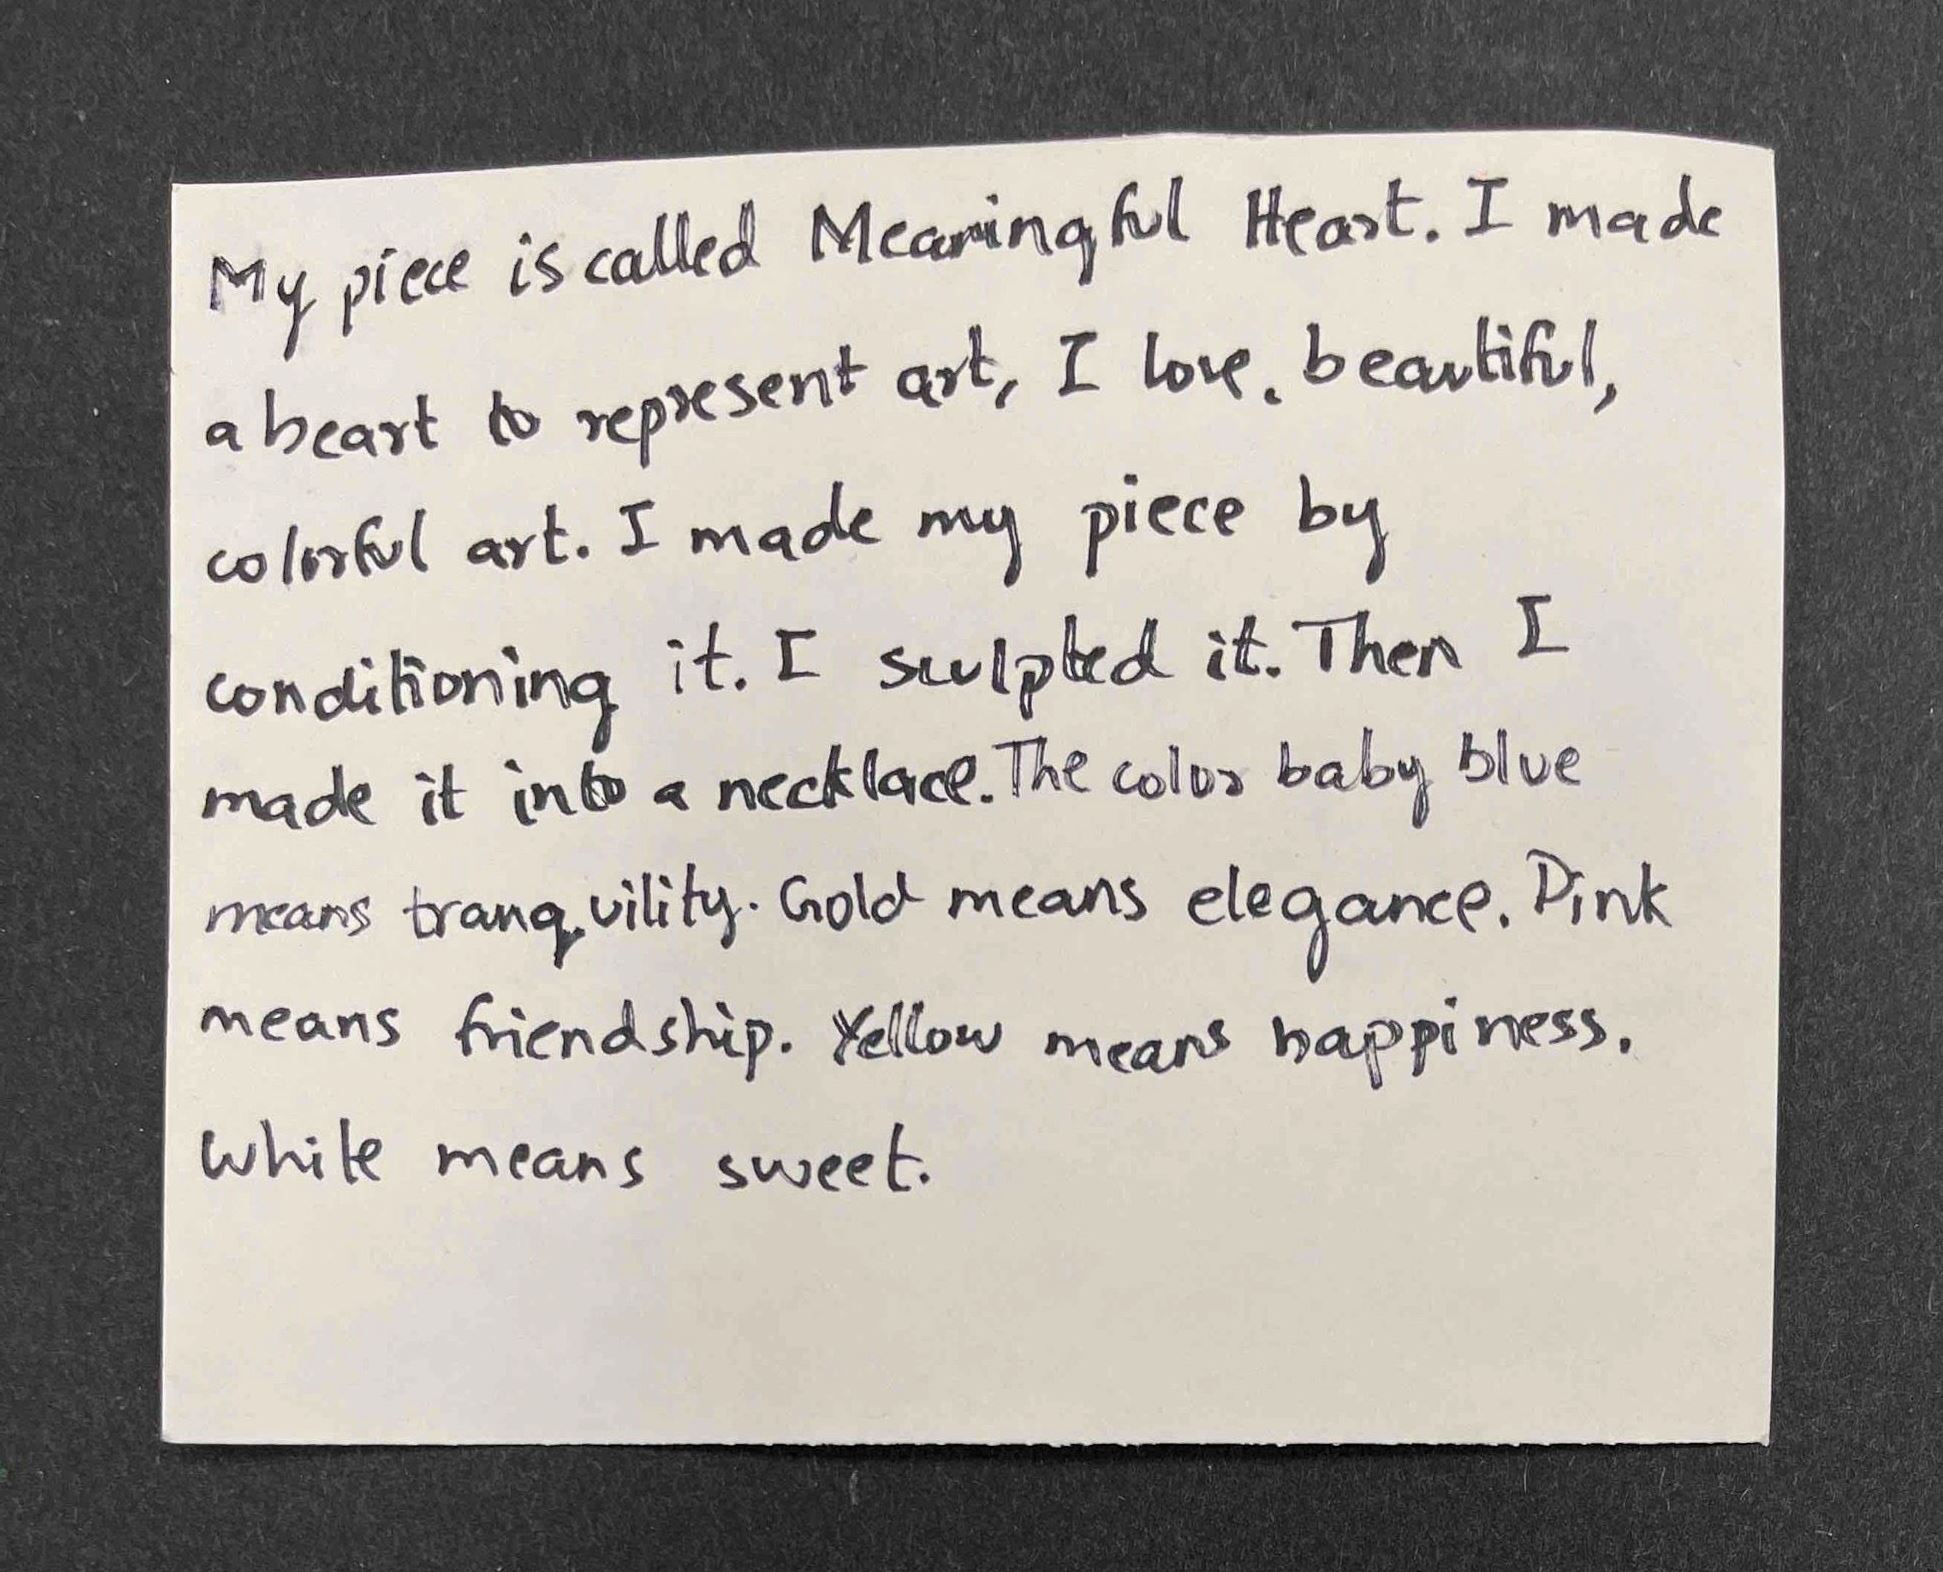 My piece is called Meaningful Heart. I made
a heart to represent art, I love. beautiful,
colorful art. I made my piece by
conditioning it. I sculpted it. Then I
made it into a necklace. The color baby blue
means tranquility. Gold means elegance. Pink
means friendship. Yellow means happiness.
White means sweet.